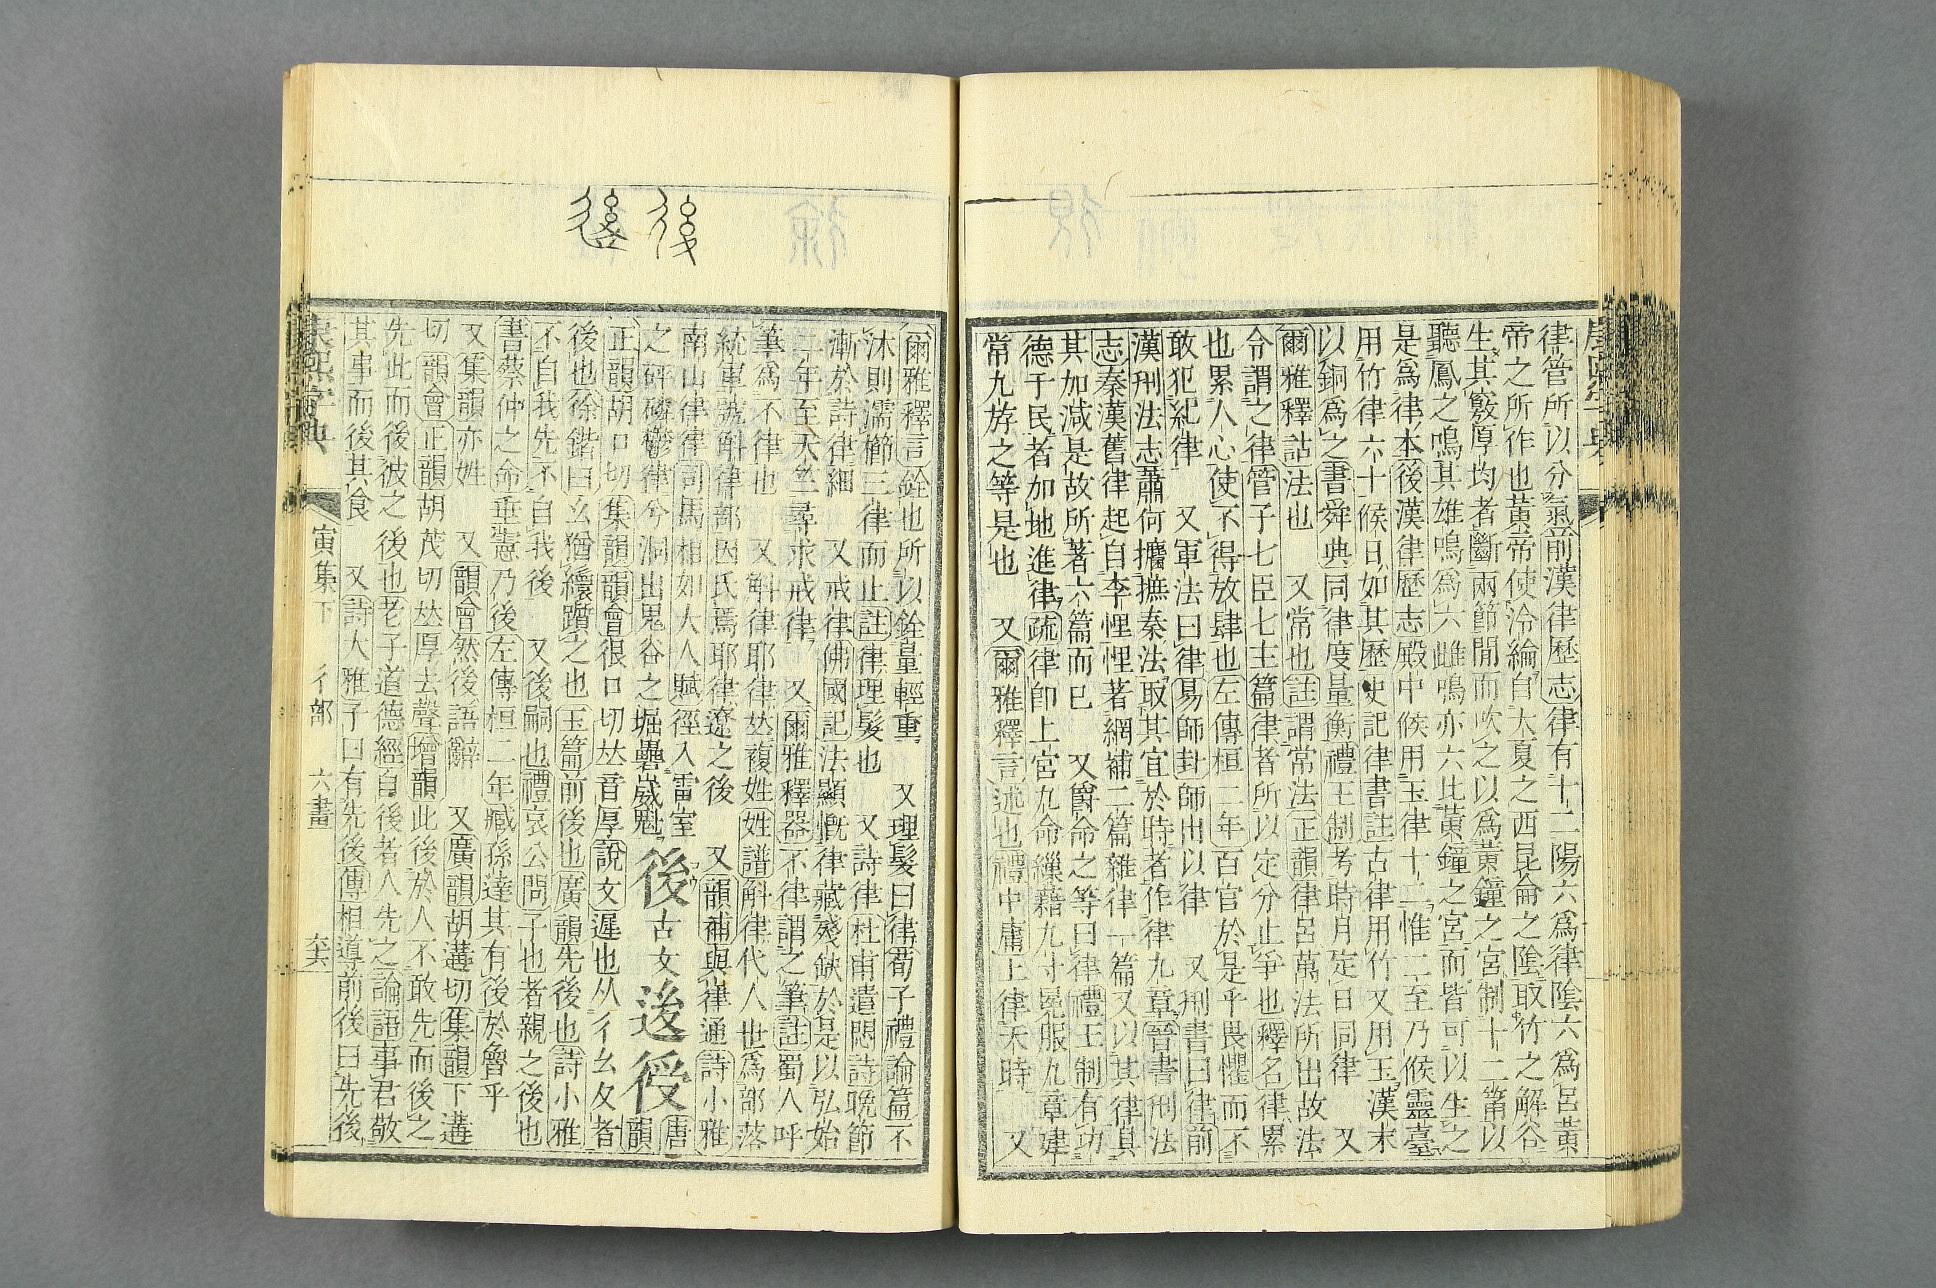 律管所以分氣前漢律歷志律有十二陽六爲律陰六爲呂黃
帝之所作也黃帝使泠綸自大夏之西昆侖之陰取竹之解谷
生其竅厚均者斷兩節閒而吹之以爲黃鐘之宮制十二筩以
聽鳳之鳴其雄鳴爲六雌鳴亦六比黃鐘之宮而皆可以生之
是爲律本後漢律歷志殿中候用玉律十二惟二至乃候靈臺
用竹律六十候日如其歷史記律書註古律用竹又用玉漢末
以銅爲之書舜典同律度量衡禮王制考時月定日同律 又
爾雅釋詁法也 又常也註謂常法正韻律呂萬法所出故法
令謂之律管子七臣七主篇律者所以定分止爭也釋名律累
也累人心使不得放肆也左傳桓二年百官於是乎畏懼而不
敢犯紀律 又軍法曰律易師卦師出以律 又刑書曰律前
漢刑法志蕭何攟摭秦法取其宜於時者作律九章晉書刑法
志秦漢舊律起自李悝悝著網補二篇雜律一篇又以其律具
其加減是故所著六篇而已 又爵命之等曰律禮王制有功
德于民者加地進律疏律卽上宮九命繅藉九寸冕服九章建
常九斿之等是也 又爾雅釋言述也禮中庸上律天時 又
爾雅釋言銓也所以銓量輕重 又理髮曰律荀子禮論篇不
沐則濡櫛三律而止註律理髮也 又詩律杜甫遣悶詩晚節
漸於詩律細 又戒律佛國記法顯慨律藏殘缺於是以弘始
二年至天竺尋求戒律 又爾雅釋器不律謂之筆註蜀人呼
筆爲不律也 又斛律耶律𠀤複姓姓譜斛律代人世爲部落
統軍號斛律部因氏焉耶律遼之後 又韻補與律通詩小雅
南山律律司馬相如大人賦徑入雷室
之砰磷鬱律兮洞出鬼谷之堀礨崴魁
後 古文 𨒥 𢓴 唐韻
正韻胡口切集韻韻會很口切𠀤音厚說文遲也从彳幺夊者
後也徐鍇曰幺猶䌥躓之也玉篇前後也廣韻先後也詩小雅
不自我先不自我後 又後嗣也禮哀公問子也者親之後也
書蔡仲之命垂憲乃後左傳桓二年臧孫達其有後於魯乎
又集韻亦姓 又韻會然後語辭 又廣韻胡遘切集韻下遘
切韻會正韻胡茂切𠀤厚去聲增韻此後於人不敢先而後之
先此而後彼之後也老子道德經自後者人先之論語事君敬
其事而後其食 又詩大雅予曰有先後傳相導前後曰先後
康熙字典 寅集下 彳部 六畫